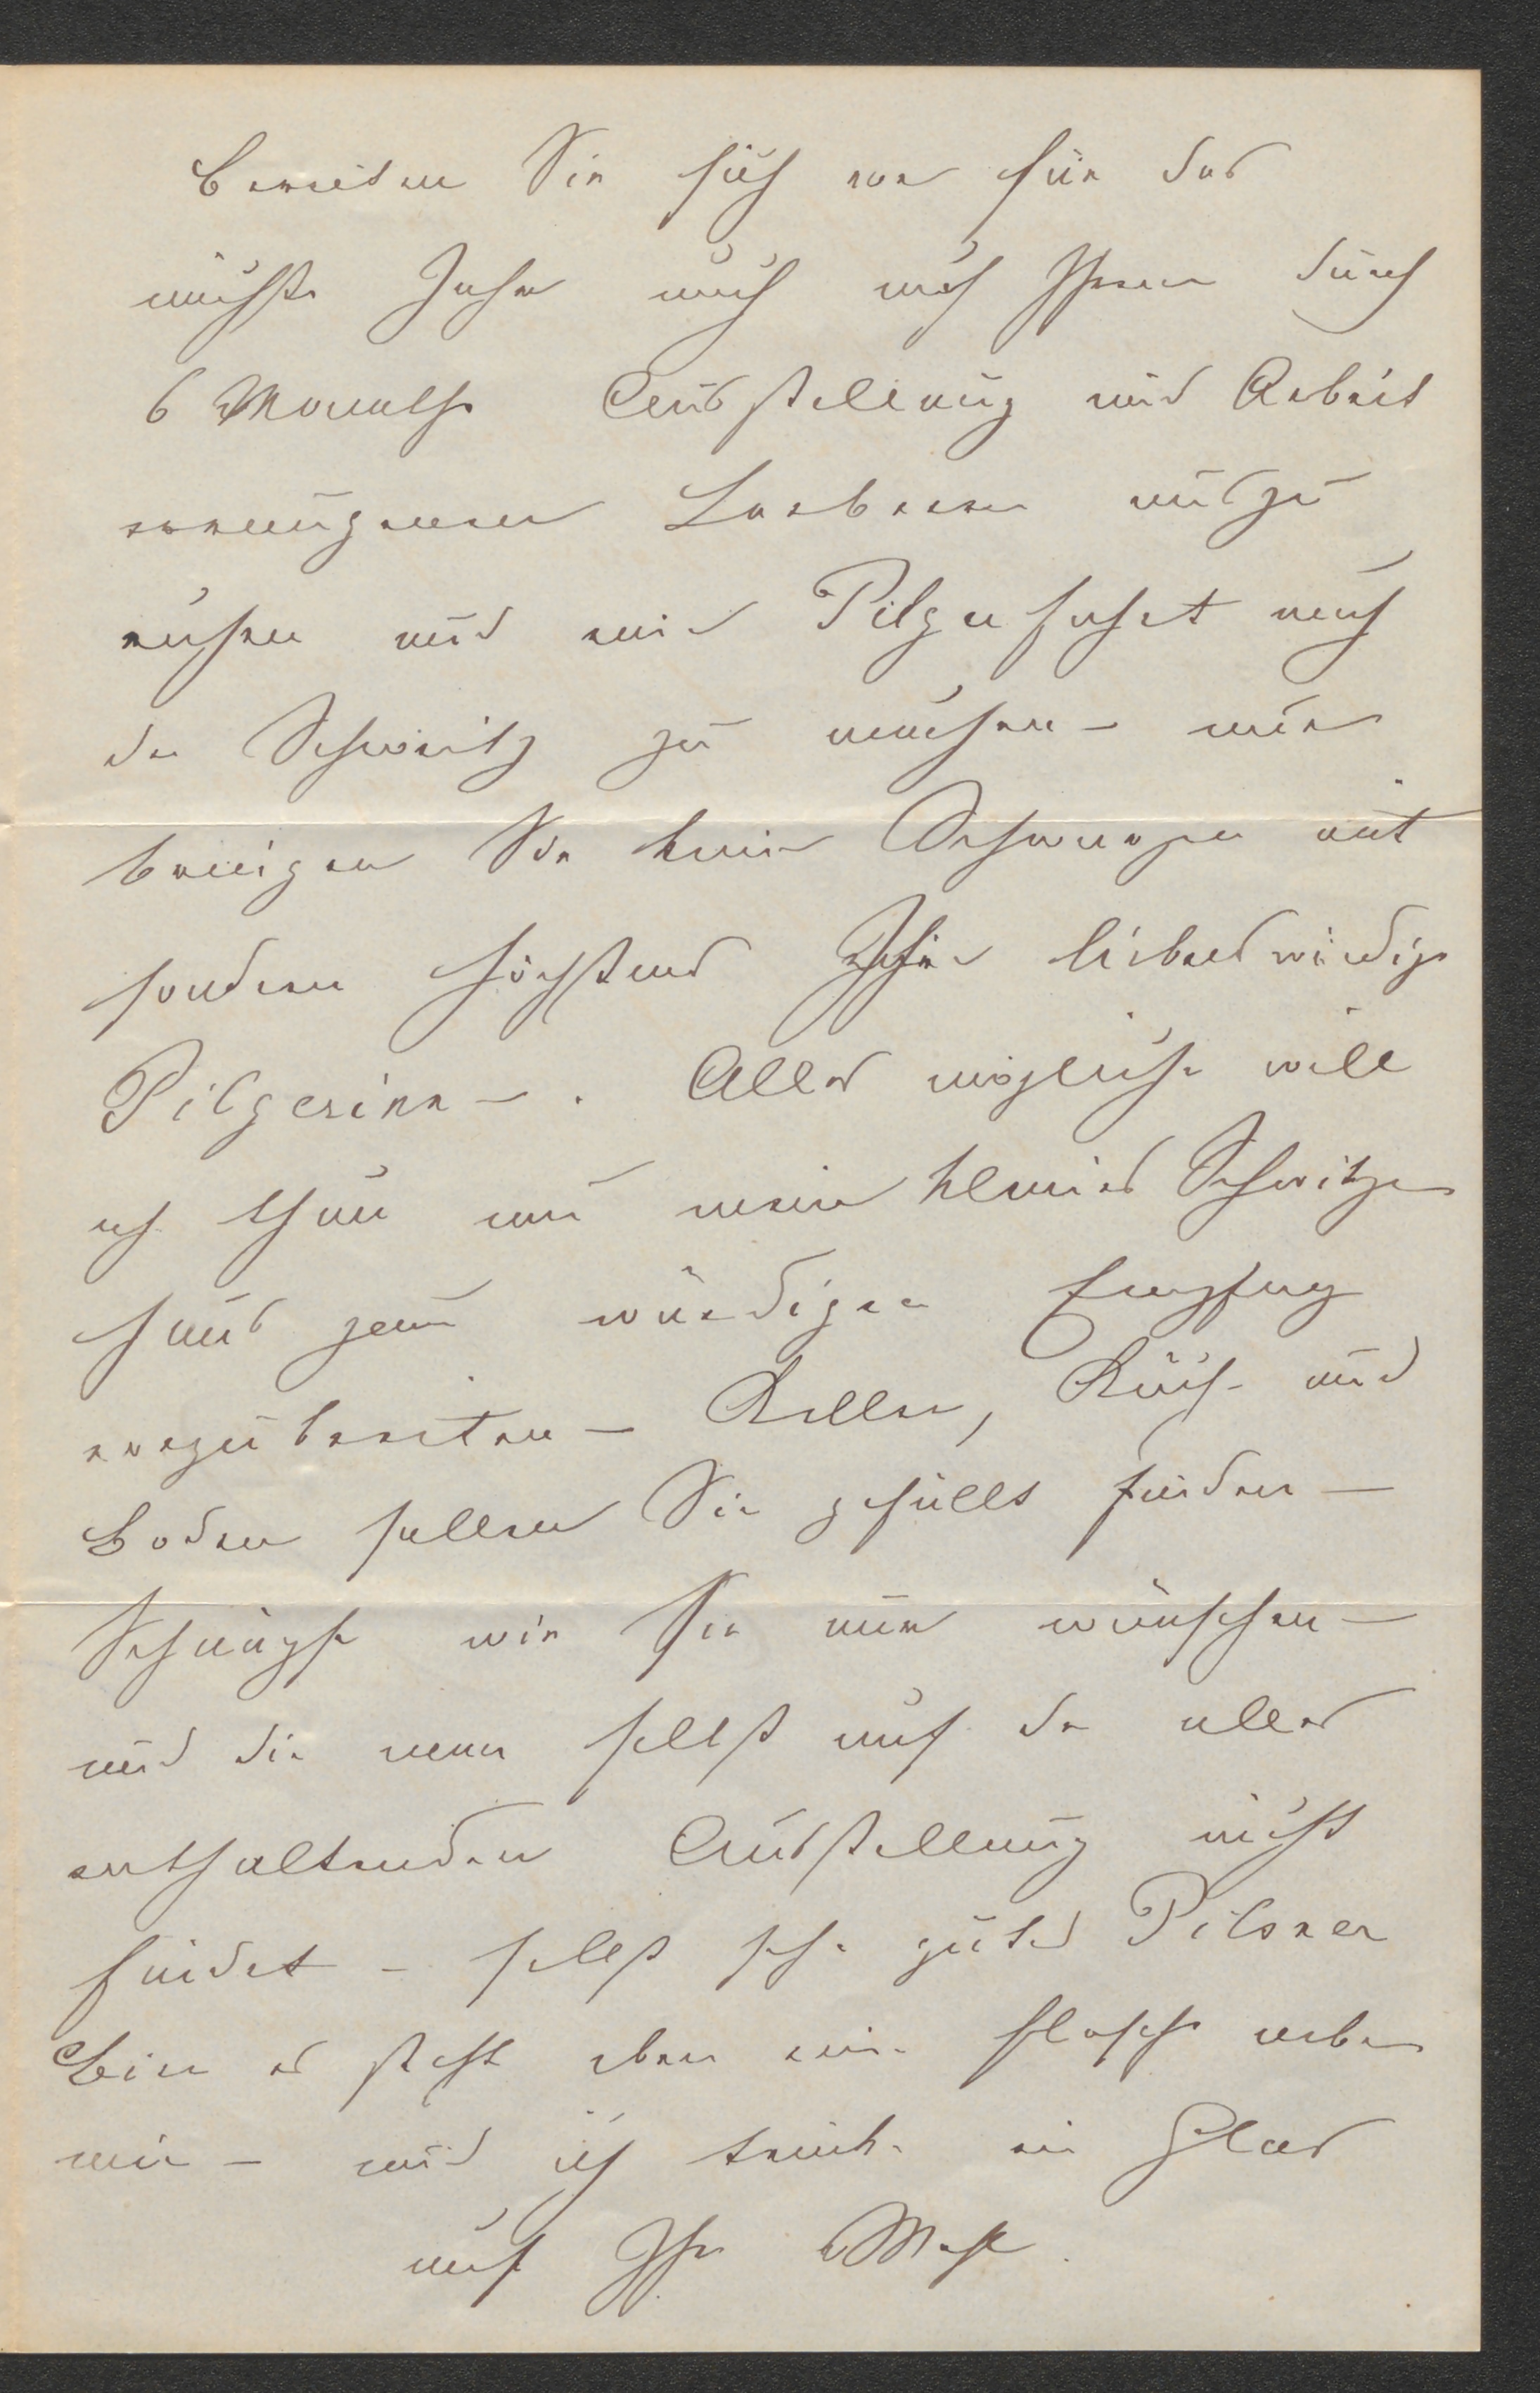 bereiten Sie sich vor für das
nächste Jahr auch auf Ihren durch
6 Monathe Ausstellung und Arbeit
errungenen Lorbeeren auszu
ruhen und eine Pilgerfahrt nach
der Schweitz zu machen – nur
bringen Sie keine Schmerzen mit
sondern höchstens Ihre liebenswürdige
Pilgerinn – . Alles mögliche will
ich thun um mein kleines Schweitzer
haus zum würdigen Empfang
vorzubereiten – Keller, Küche und
Boden sollen Sie gefüllt finden –
Schnäpse wie Sie nur wünschen –
und die man selbst auf der alles
enthaltenden Ausstellung nicht
findet – selbst sehr gutes Pilsner
Bier es steht eben eine Flasche neben
mir – und ich trinke ein Glas
auf Ihr Wohl.